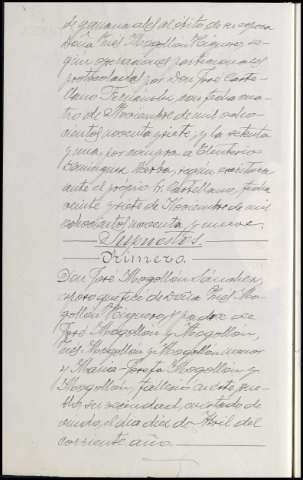 de gananciales al óbito de su esposa
Doña Inés Mogollón Higuero, se-
gún operaciones particionales
protocoladas por Don José Caste-
llano Fernández, con fecha cua-
tro de Noviembre de mil ocho-
cientos noventa y siete, y la setenta
y una, por compra a Eleuterio
Domínguez Barba, según escritura
ante el propio Sr. Castellano, fecha
veinte y siete de Noviembre de mil
ochocientos noventa y nueve.
Supuestos.
Primero.
Don José Mogollón Sánchez,
esposo que fué de Doña Inés Mo-
gollón Higuero, y padre de
José Mogollón y Mogollón,
Inés Mogollón y Mogollón menor
y María-Josefa Mogollón y
Mogollón, falleció en este pue-
blo, su vecindad, en estado de
viudo, el día diez de Abril del
corriente año.